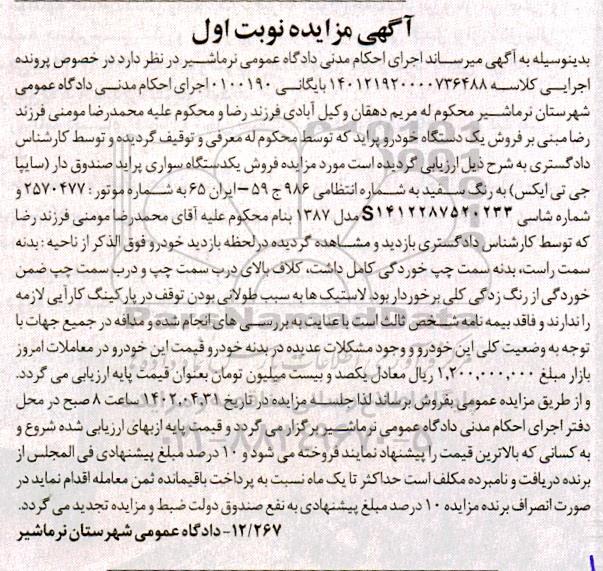 آگهی مزایده نوبت اول
بدینوسیله به آگهی میرساند اجرای احکام مدنی دادگاه عمومی نرماشیر در نظر دارد در خصوص پرونده
اجرایی کلاسه ۱۴۰۱۲۱۹۲۰۰۰۰۷۳۶۴۸۸ بایگانی ۰۱۰۰۱۹۰ اجرای احکام مدنی دادگاه عمومی
شهرستان نرماشیر محکوم له مریم دهقان وکیل آبادی فرزند رضا و محکوم علیه محمدرضا مومنی فرزند
رضا مبنی بر فروش یک دستگاه خودرو پراید که توسط محکوم له معرفی و توقیف گردیده و توسط کارشناس
دادگستری به شرح ذیل ارزیابی گردیده است مورد مزایده فروش یکدستگاه سواری پراید صندوق دار (سایپا
جی تی ایکس) به رنگ سفید به شماره انتظامی ۹۸۶ ج ۵۹ – ایران ۶۵ به شماره موتور : ۲۵۷۰۴۷۷ و
شماره شاسی S۱۴۱۲۲۸۷۵۲۰۲۳۳ مدل ۱۳۸۷ بنام محکوم علیه آقای محمدرضا مومنی فرزند رضا
که توسط کارشناس دادگستری بازدید و مشاهده گردیده در لحظه بازدید خودرو فوق الذکر از ناحیه : بدنه
سمت راست، بدنه سمت چپ خوردگی کامل داشت، کلاف بالای درب سمت چپ و درب سمت چپ ضمن
خوردگی از رنگ زدگی کلی برخوردار بود. لاستیک ها به سبب طولانی بودن توقف در پارکینگ کارآیی لازمه
را ندارند و فاقد بیمه نامه شخص ثالث است با عنایت به بررسی های انجام شده و مداقه در جمیع جهات با
توجه به وضعیت کلی این خودرو و وجود مشکلات عدیده در بدنه خودرو قیمت این خودرو در معاملات امروز
بازار مبلغ ۱,۲۰۰,۰۰۰,۰۰۰ ریال معادل یکصد و بیست میلیون تومان بعنوان قیمت پایه ارزیابی می گردد.
و از طریق مزایده عمومی بفروش برساند لذا جلسه مزایده در تاریخ ۱۴۰۲.۰۴.۳۱ ساعت ۸ صبح در محل
دفتر اجرای احکام مدنی دادگاه عمومی نرماشیر برگزار می گردد و قیمت پایه ازبهای ارزیابی شده شروع و
به کسانی که بالاترین قیمت را پیشنهاد نمایند فروخته می شود و ۱۰ درصد مبلغ پیشنهادی فی المجلس از
برنده دریافت و نامبرده مکلف است حداکثر تا یک ماه نسبت به پرداخت باقیمانده ثمن معامله اقدام نماید در
صورت انصراف برنده مزایده ۱۰ درصد مبلغ پیشنهادی به نفع صندوق دولت ضبط و مزایده تجدید می گردد.
۱۲/۲۶۷- دادگاه عمومی شهرستان نرماشیر
ParsNamadData
۰۲۱-۸۸۳۴۹۶۷۰-۵